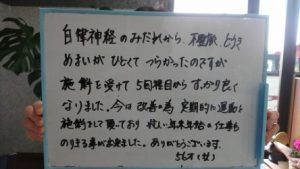 自律神経のみだれから、不整脈、どうき
めまいがひどくてつらかったのですが
施術を受けて5回程目からすっかり良く
なりました。今は改善の為 定期的に運動と
施術をして頂いており 忙しい年末年始の仕事も
のりきる事が出来ました。ありがとうございます。
56才(女)